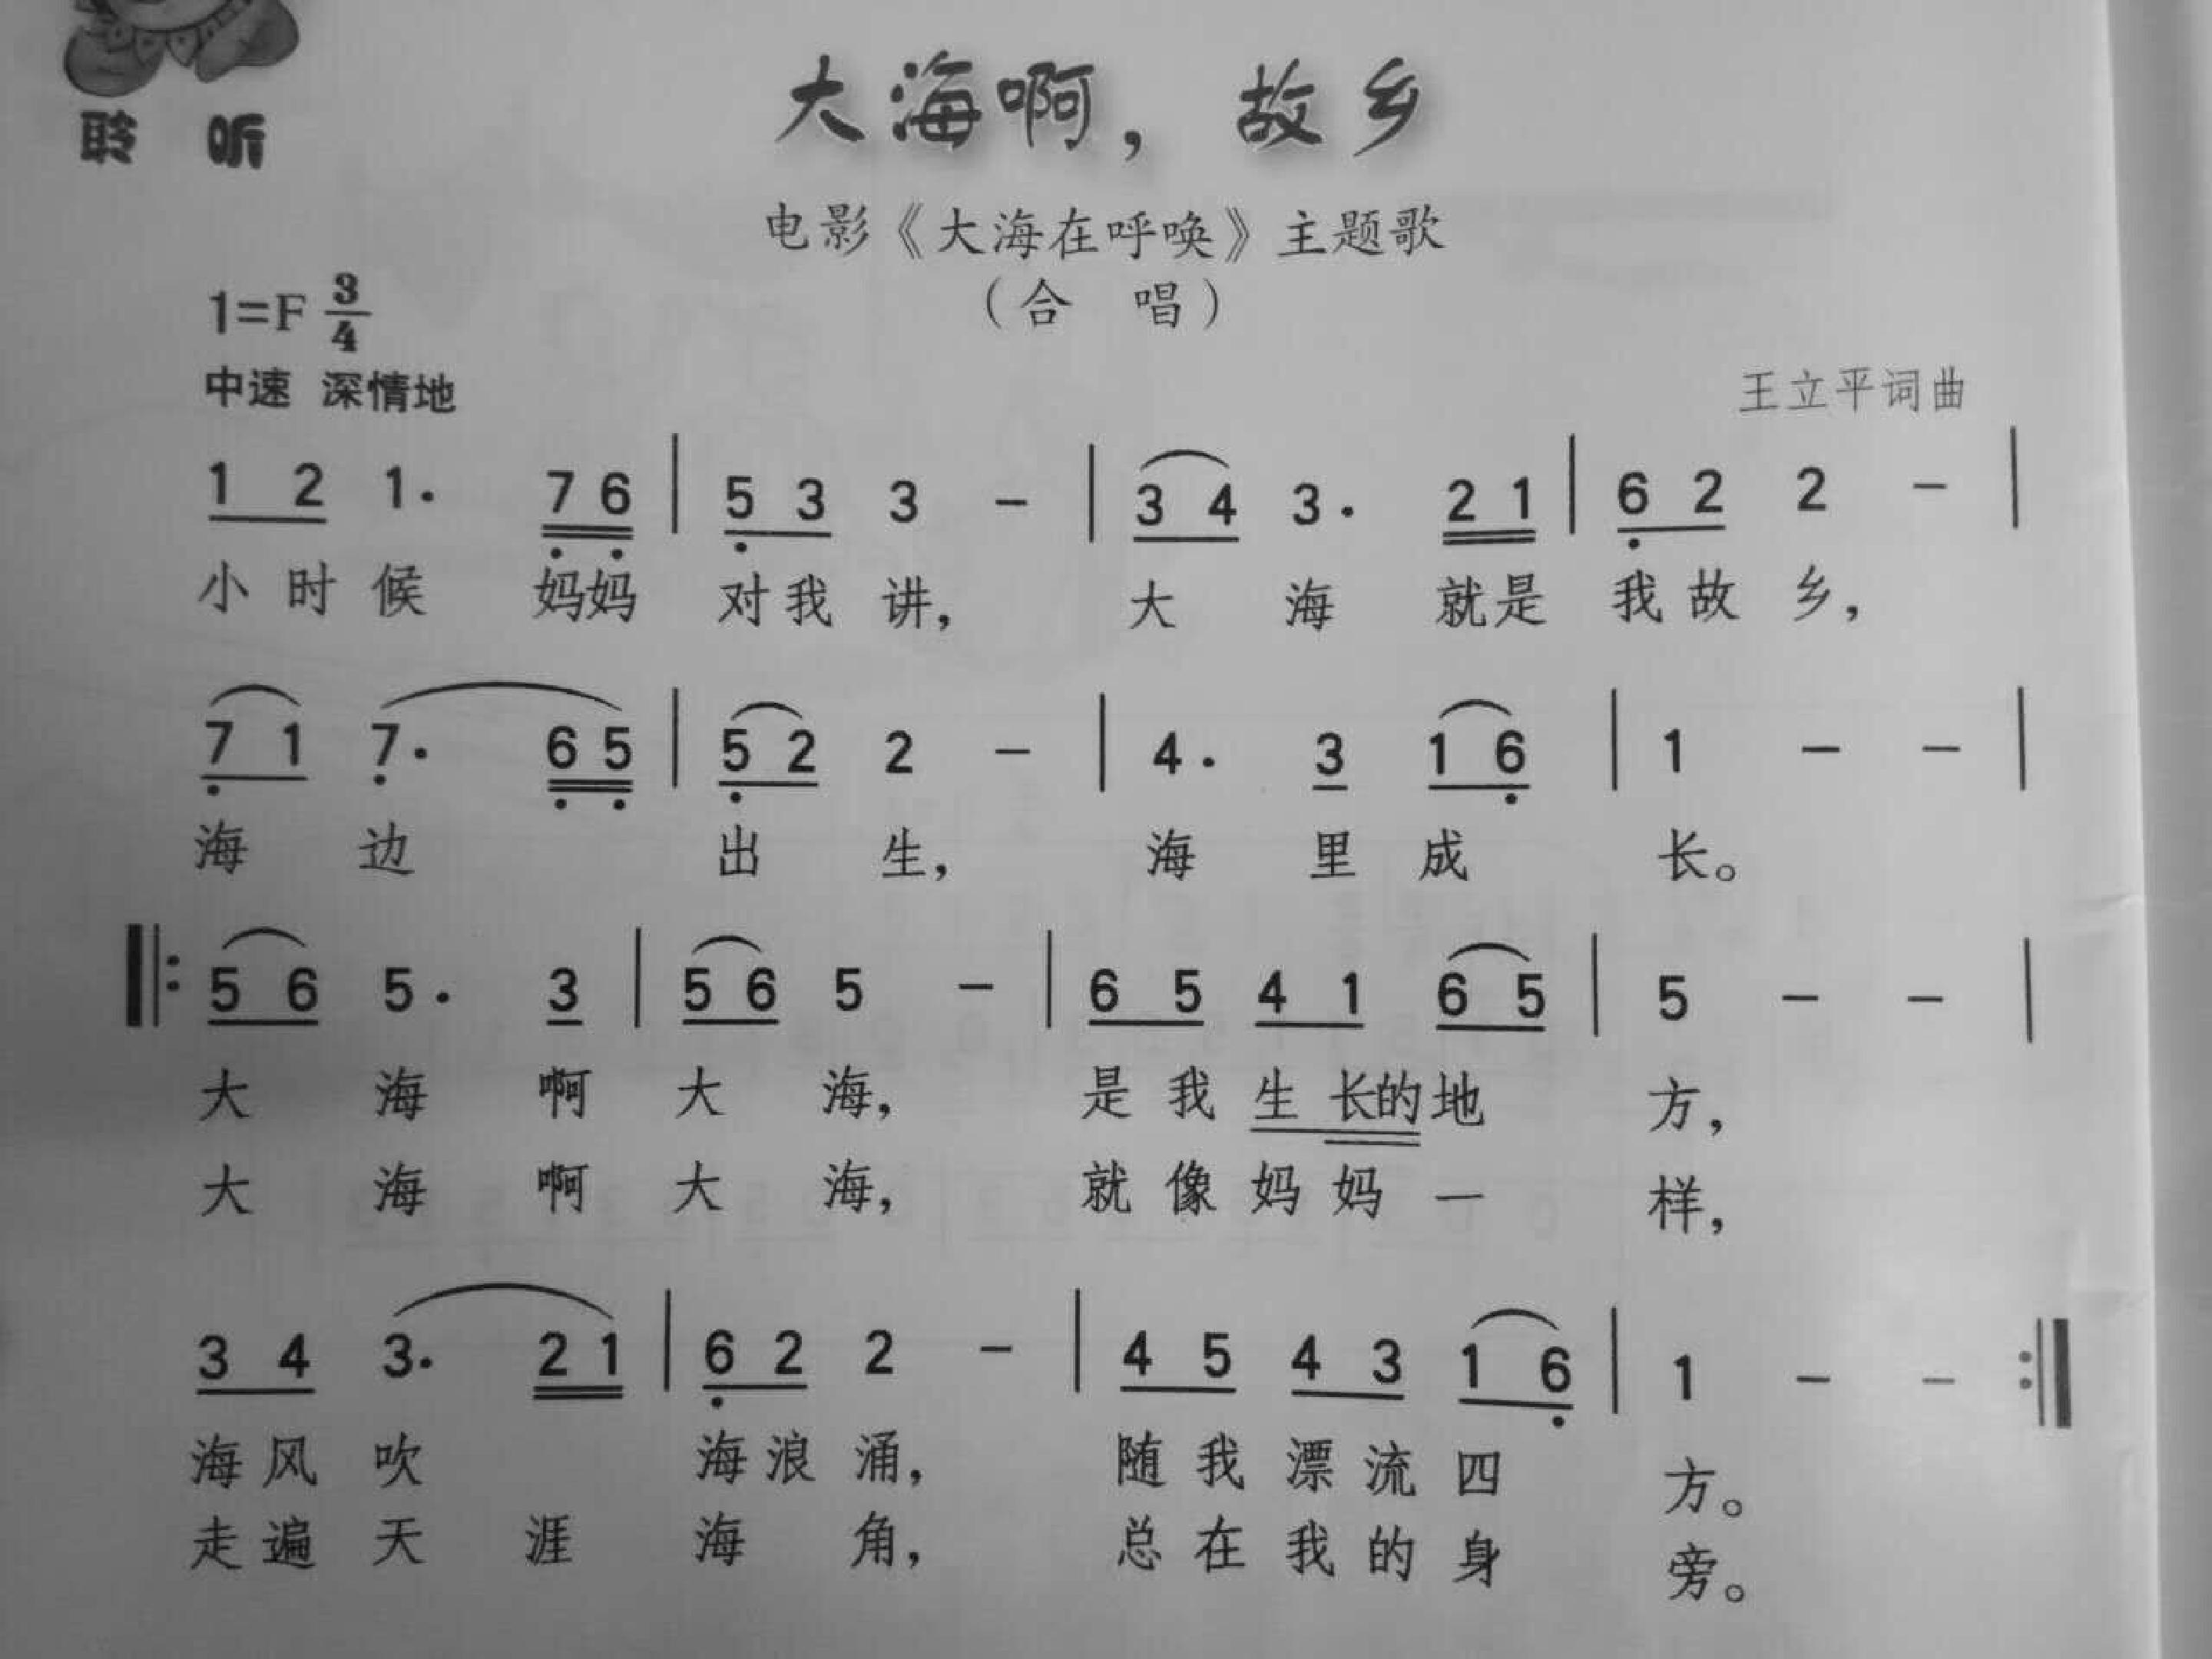 聆 听
大海啊，故乡
电影《大海在呼唤》主题歌
（合 唱）
1=F 3/4
中速 深情地
王立平词曲
1 2 1. 7 6 | 5 3 3 － | 3 4 3. 2 1 | 6 2 2 － |
小 时 候 妈妈 对我 讲， 大 海 就是 我 故 乡，
7 1 7. 6 5 | 5 2 2 － | 4. 3 1 6 | 1 － － |
海 边 出 生， 海 里 成 长。
‖: 5 6 5. 3 | 5 6 5 － | 6 5 4 1 6 5 | 5 － － |
大 海 啊 大 海， 是 我 生 长的 地 方，
大 海 啊 大 海， 就 像 妈 妈 一 样，
3 4 3. 2 1 | 6 2 2 － | 4 5 4 3 1 6 | 1 － － :‖
海 风 吹 海 浪 涌， 随 我 漂 流 四 方。
走 遍 天 涯 海 角， 总 在 我 的 身 旁。